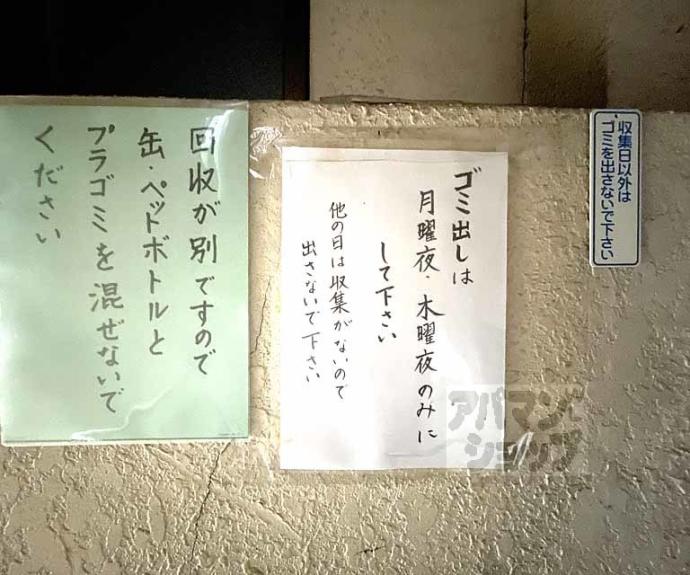 収集日以外は
ゴミを出さないで下さい
ゴミ出しは
月曜夜・木曜夜のみに
して下さい
他の日は収集がないので
出さないで下さい
回収が別ですので
缶・ペットボトルと
プラゴミを混ぜないで
ください
アパマン
ショップ